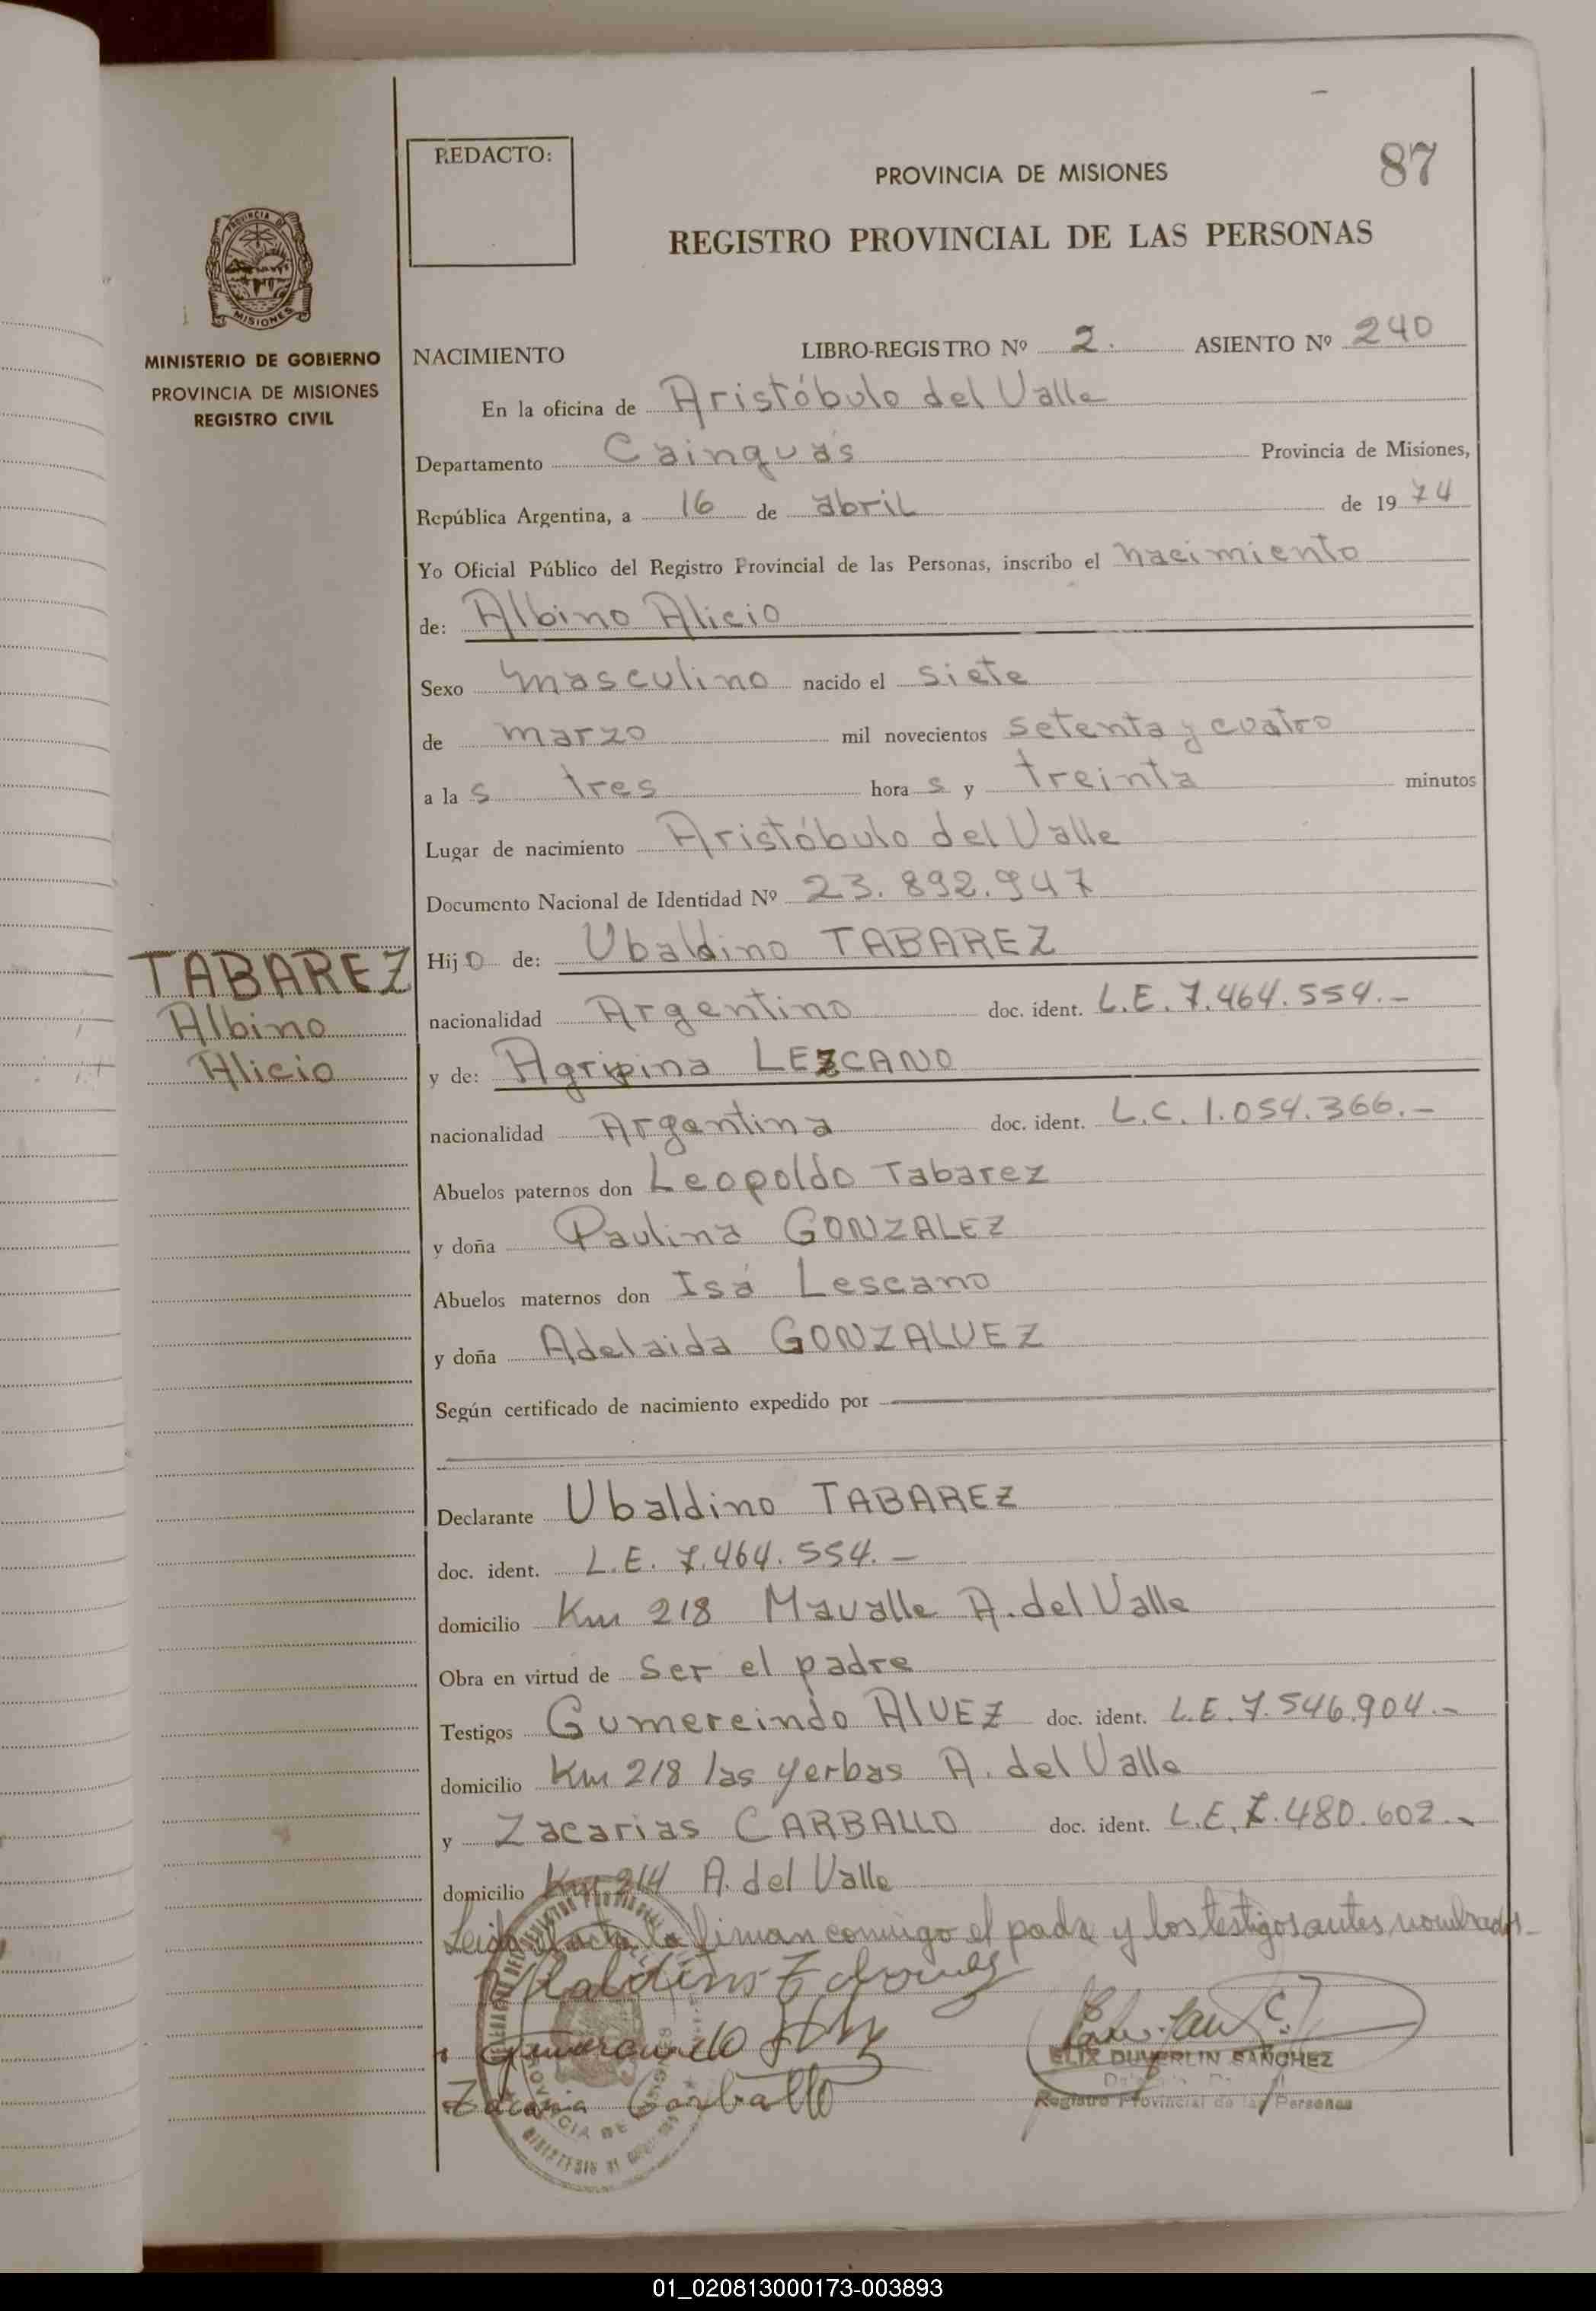 REDACTO:
PROVINCIA DE MISIONES
87
REGISTRO PROVINCIAL DE LAS PERSONAS
PROVINCIA DE
MISIONES
MINISTERIO DE GOBIERNO
PROVINCIA DE MISIONES
REGISTRO CIVIL
NACIMIENTO LIBRO-REGISTRO Nº 2. ASIENTO Nº 240
En la oficina de Aristóbulo del Valle
Departamento Cainguás Provincia de Misiones,
República Argentina, a 16 de abril de 19 74
Yo Oficial Público del Registro Provincial de las Personas, inscribo el nacimiento
de: Albino Alicio
Sexo masculino nacido el siete
de marzo mil novecientos setenta y cuatro
a la s tres hora s y treinta minutos
Lugar de nacimiento Aristóbulo del Valle
Documento Nacional de Identidad Nº 23.892.947
TABAREZ
Albino
Alicio
Hijo de: Ubaldino TABAREZ
nacionalidad Argentino doc. ident. L.E. 7.464.554.-
y de: Agripina LEZCANO
nacionalidad Argentina doc. ident. L.C. 1.054.366.-
Abuelos paternos don Leopoldo Tabarez
y doña Paulina GONZALEZ
Abuelos maternos don Isá Lescano
y doña Adelaida GONZALVEZ
Según certificado de nacimiento expedido por
Declarante Ubaldino TABAREZ
doc. ident. L.E. 7.464.554.-
domicilio Km 218 Mavalle A. del Valle
Obra en virtud de ser el padre
Testigos Gumereindo AlVEZ doc. ident. L.E. 7.546.904.-
domicilio Km 218 las yerbas A. del Valle
y Zacarias CARBALLO doc. ident. L.E. 7.480.602.-
domicilio Km 214 A. del Valle
Leida el acta la firman conmigo el padre y los testigos antes nombrados.-
Zacaria Carballo
ELIX DUVERLIN SANCHEZ
Registro Provincial de las Personas
01_020813000173-003893